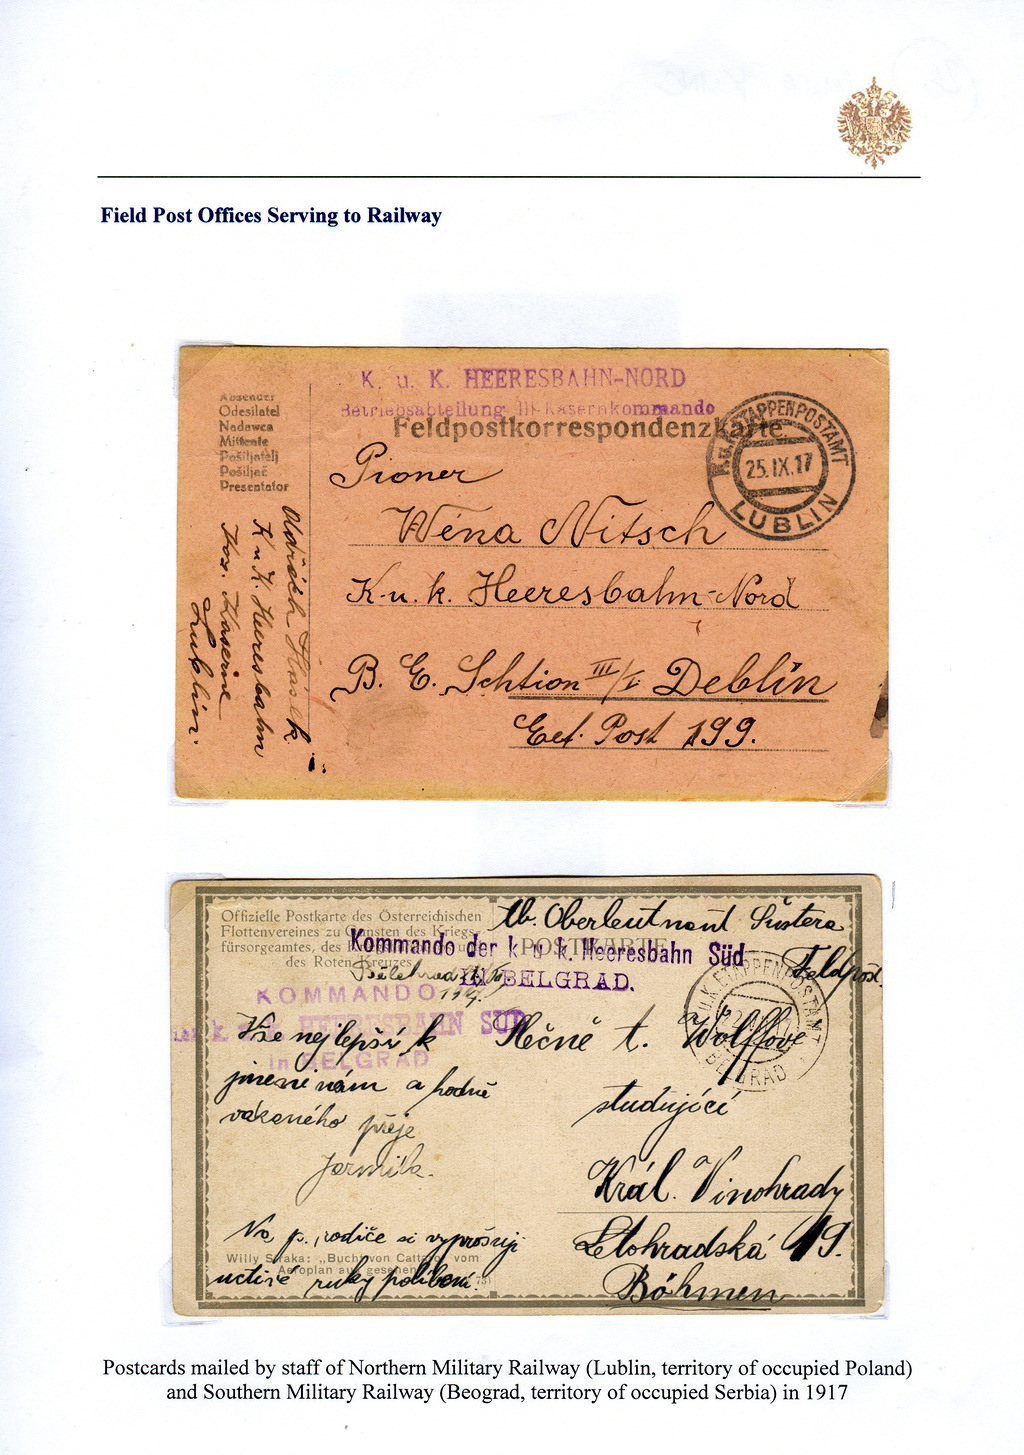 Field Post Offices Serving to Railway
K. u. K. HEERESBAHN-NORD
Betriebsabteilung III-Kasernkommando
Feldpostkorrespondenzkarte
Absender
Odesílatel
Nadawca
Mittente
Pošiljatelj
Pošiljač
Presentator
K.u.K. ETAPPENPOSTAMT
25.IX.17
LUBLIN
Pioner
Wena Nitsch
K. u. k. Heeresbahn-Nord
B. E. Schtion III/I Deblin
Post 199.
K u K. Heeresbahn
Kaserne
Lublin.
Offizielle Postkarte des Österreichischen
Flottenvereines zu Gunsten des Kriegs-
fürsorgeamtes, des
des Roten Kreuzes.
POSTKARTE
Oberleutnant Šustera
Feldpost.
Kommando der k. u. k. Heeresbahn Süd
IN BELGRAD.
1917.
KOMMANDO
HEERESBAHN SÜD
in BELGRAD
K.u.K. ETAPPENPOSTAMT
BELGRAD
Vše nejlepší k
jmeninám a hodně
váženého přeje
Jarmila.
Na p. rodiče si vyprošuji
uctivé ruky políbení.
Slečně t. Wolffové
studující
Král. Vinohrady
Letohradská 49.
Böhmen
Willy Straka: „Bucht von Cattaro, vom
Aeroplan aus gesehen
Postcards mailed by staff of Northern Military Railway (Lublin, territory of occupied Poland)
and Southern Military Railway (Beograd, territory of occupied Serbia) in 1917